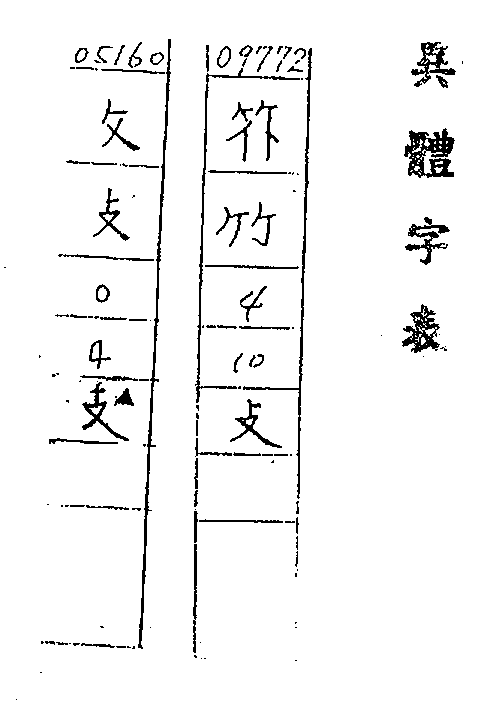 異體字表
09772
竹
4
10
攴
05160
攵
攴
0
4